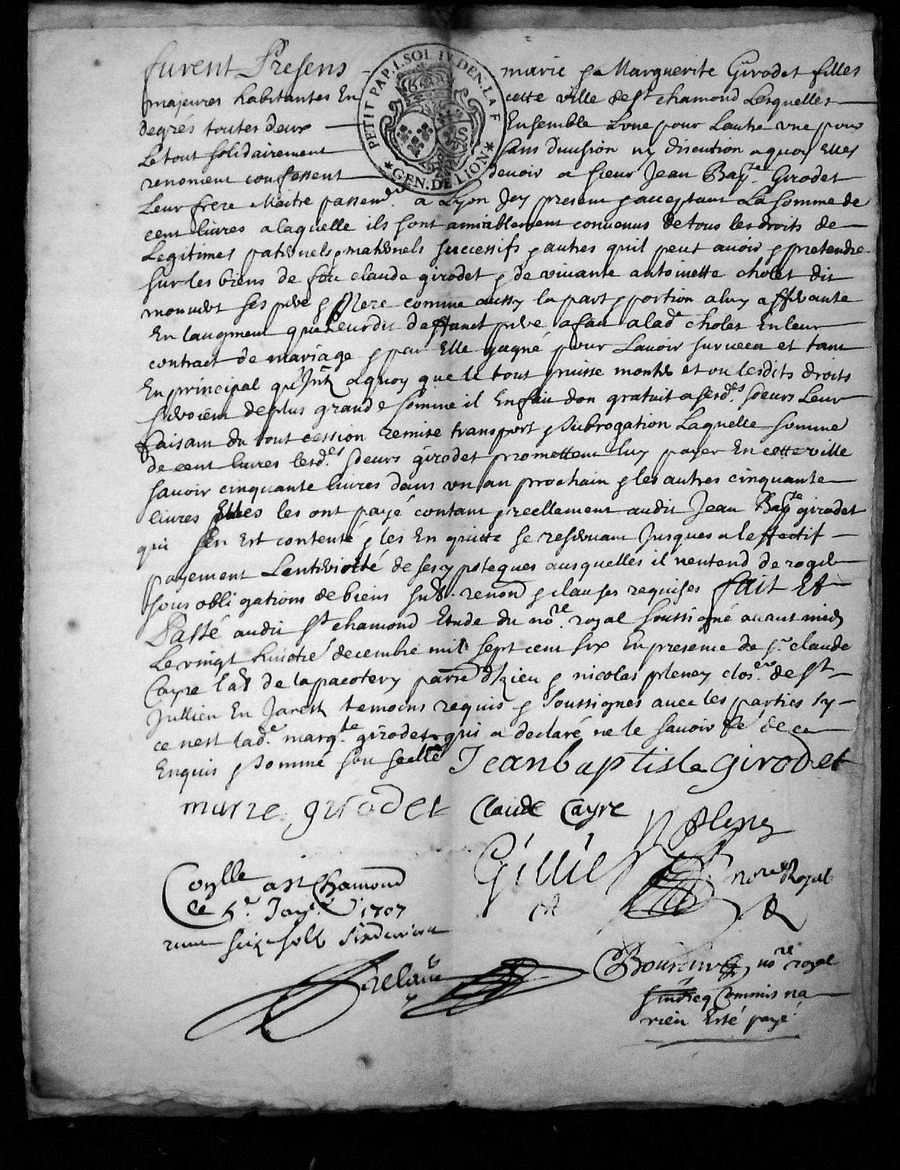 furent Presens marie & Marguerite Girodet filles
PETIT PAP. 1. SOL IV DEN. LA F
★ GEN. DE LION ★
majeures habitantes En cette ville de St chamond Lesquelles
degrés toutes deux Ensemble Lune pour Lautre une pour
Le tout solidairement sans division ni discution a quoy Elles
renoncent confessent devoir a sieur Jean Bapte Girodet
Leur frere Maitre passemr a Lyon Icy present & acceptant La somme de
cent livres a laquelle ils sont amiablement convenus de tous les droits de
Legitimes paternels & maternels successifs & autres quil peut avoir & pretendre
sur les biens de feu claude girodet & de vivante antoinette cholet dit
ses pere & Mere comme aussy la part & portion a luy afferante
En laugment que leurdit deffunct pere a fait a lade cholet En leur
contract de mariage & par Elle gagné pour Lavoir survecu et tant
En principal a quoy que le tout puisse monter et ou lesdits droits
seroient de plus grande somme il En fait don gratuit a sesdes soeurs Leur
faisant du tout cession remise transport & subrogation Laquelle somme
de cent livres lesdes soeurs girodet promettent luy payer En cette ville
savoir cinquante livres dans un an prochain & les autres cinquante
livres Elles les ont payé contant & reellement audit Jean Bapte girodet
qui sen Est contenté & les En quitte se reservant Jusques a leffectif
payement Lanteriorité de ses ypoteques ausquelles il nentend deroger
sous obligations de biens renond & clauses requises fait Et
Passé audit St chamond Etude du nore royal soussigné avant midy
Le vingt huitie decembre mil sept cent six En presence de sr claude
Cayre de la pacotery parre dIzieu & nicolas pleney de St
Jullien En Jarest temoins requis & soussignés avec les parties sy
ce nest lade margte girodet qui a declaré ne le savoir de ce
Enquis & sommé Jean baptiste girodet
marie girodet Claude Cayre
N Pleney
Gillier nore Royal
Conlle a St Chamond
ce 5e Janr 1707
six sols
nore royal
sindicq Commis na
rien Esté payé